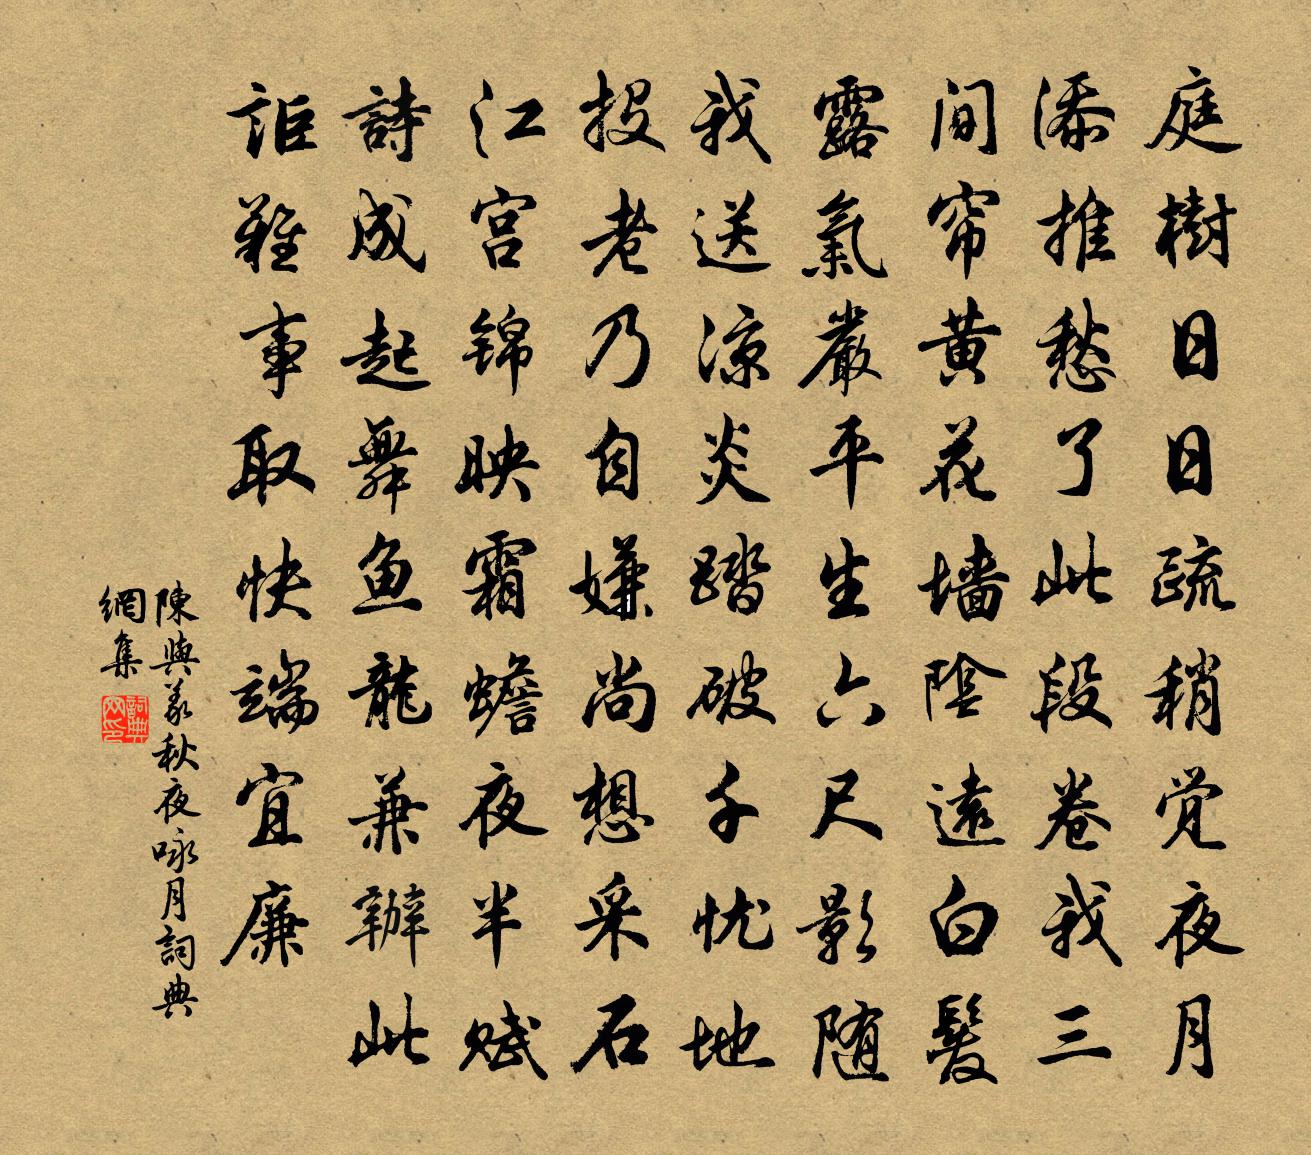 庭樹日日疏稍觉夜月
添推愁了此段卷我三
间帘黄花墙陰遠白髮
露氣嚴平生六尺影随
我送凉炎踏破千忧地
投老乃自嫌尚想采石
江宫锦映霜蟾夜半赋
詩成起舞鱼龍兼辦此
詎難事取快端宜廉
陳與義秋夜咏月詞典
網集
詞典网印